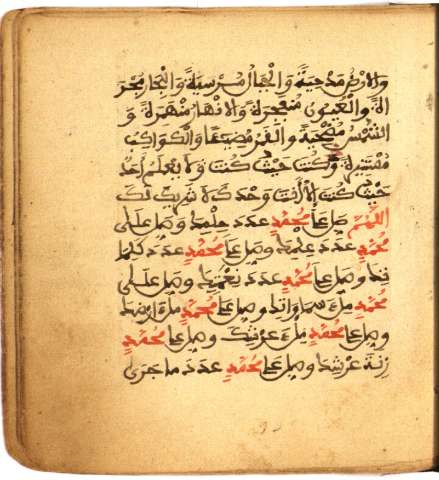 والارض مدحية والجبال مرسية والبحار مجرا
ة والعيون منفجرة والانهار منهمرة و
الشمس مضحية والقمر مضيئا والكواكب
مستنيرة وكنت حيث كنت ولا يعلم احد
حيث كنت الا انت وحدك لا شريك لك
اللهم صل على محمد عدد حلمك وصل على
محمد عدد علمك وصل على محمد عدد كلما
تك وصل على محمد عدد نعمتك وصل على
محمد ملء سماواتك وصل على محمد ملء ارضك
وصل على محمد ملء عرشك وصل على محمد
زنة عرشك وصل على محمد عدد ما جرى